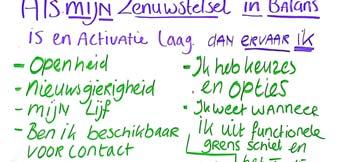 Als mijn Zenuwstelsel in Balans
is en Activatie laag. dan ervaar ik
- Openheid
- Nieuwsgierigheid
- mijn Lijf
- Ben ik beschikbaar
voor contact
- Ik heb keuzes
en opties
- Ik weet wanneer
ik uit functionele
grens schiet en